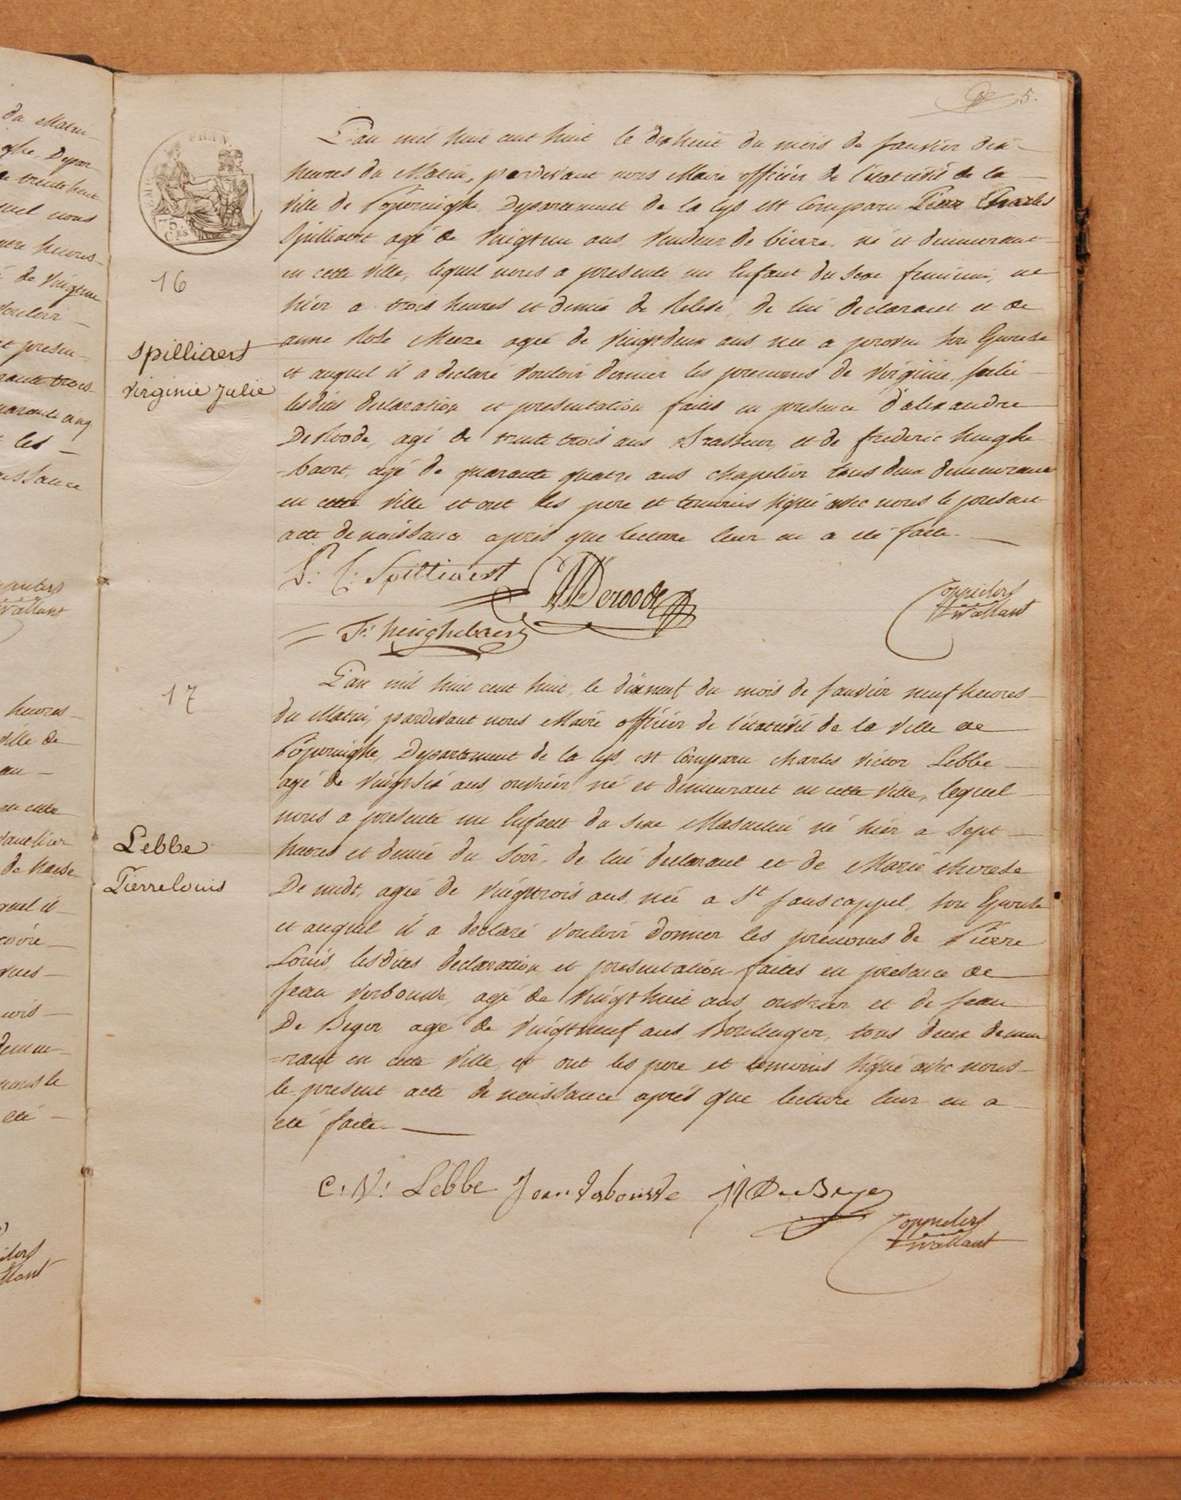 5.
L'an mil huit cent huit le dixhuit du mois de Janvier dix
heures du Matin, pardevant nous Maire officier de l'état civil de la
Ville de Poperinghe, Departement de la Lys est Comparu Pierre Charles
Spilliaert agé de Vingt un ans, Vendeur de bierre, né et demeurant
en cette Ville, lequel nous a presenté un Enfant du Sexe feminin, né
hier a trois heures et demie de Relevé, de lui declarant et de
anne Rose Meeze agée de Vingt deux ans née a proven Son Epouse
et auquel il a declaré Vouloir donner les prenoms de Virginie Julie
lesdites declaration et presentation faites en presence d'alexandre
DeRoode, agé de trente trois ans Brasseur, et de frederic henghe
-baert, agé de quarante quatre ans chapelier tous deux demeurant
en cette Ville et ont les pere et temoins signé avec nous le present
acte de naissance après que lecture leur en a été faite.
16
Spilliaert
Virginie Julie
P: C: Spilliaert
Deroode
F: henghebaert
17
L'an mil huit cent huit, le dixneuf du mois de Janvier neuf heures
du Matin, pardevant nous Maire officier de l'état civil de la Ville de
Poperinghe, Departement de la Lys, est Comparu Charles Victor Lebbe
agé de Vingt Six ans ouvrier né et demeurant en cette Ville, lequel
nous a presenté un Enfant du Sexe Masculin né hier a Sept
heures et demie du Soir, de lui declarant et de Marie therese
De nudt, agée de Vingt trois ans, née a St Janscappel, Son Epouse
et auquel il a declaré Vouloir donner les prénoms de Pierre
Louis, lesdites declaration et presentation faites en presence de
Jean Verbouwe, agé de Vingt huit ans ouvrier et de Jean
De Beyer agé de Vingt neuf ans Boulanger, tous deux demeu
-rant en cette Ville, et ont les pere et temoins signé avec nous
le present acte de naissance après que lecture leur en a
été faite.
Lebbe
Pierre Louis
C: V: Lebbe